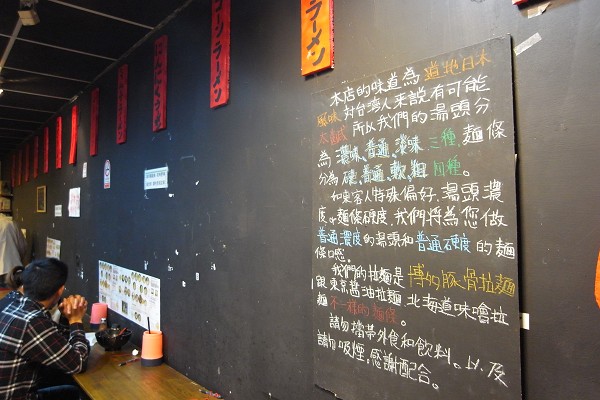 コーンラーメン
ラーメン
にんにくラーメン
本店的味道為道地日本
風味對台灣人來說有可能
太鹹 所以我們的湯頭分
為濃味、普通、淡味三種.麵條
分為硬、普通、軟、粗四種。
如來客人特殊偏好.湯頭濃
度.麵條硬度.我們將為您做
普通濃度的湯頭和普通硬度的麵
條口感。
我們的拉麵是博多豚骨拉麵
跟東京醬油拉麵.北海道味噌拉
麵不一樣的麵條。
請勿攜帶外食和飲料.以及
請勿吸煙.感謝配合。